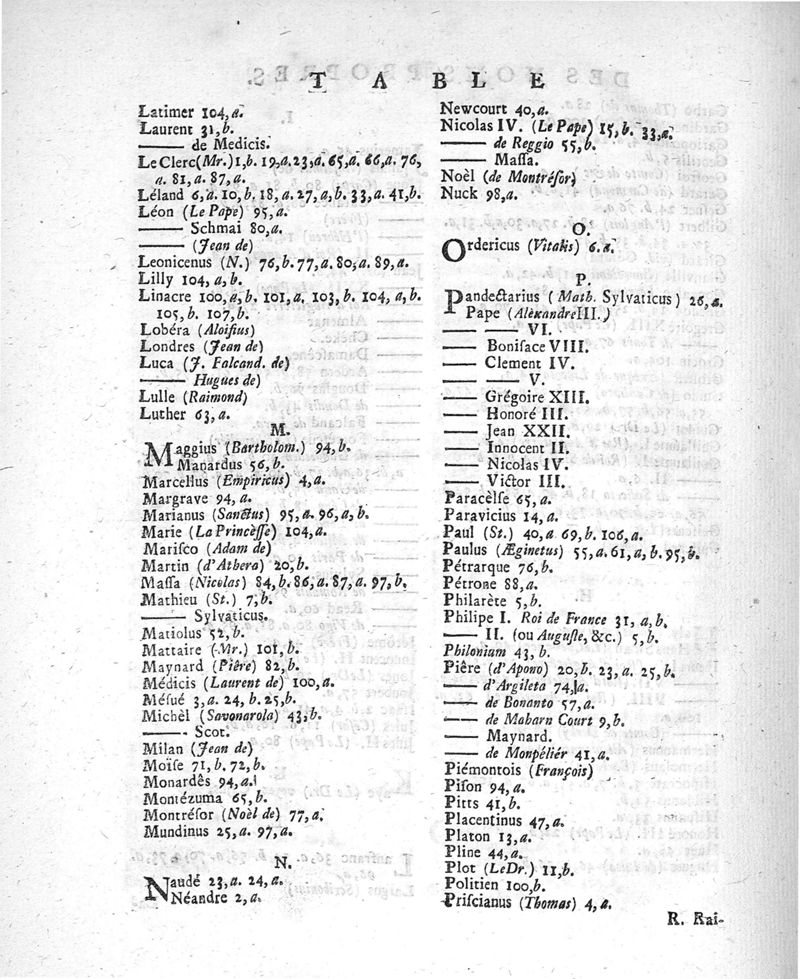 TABLE
Latimer 104, a.
Laurent 31, b.
—— de Medicis.
Le Clerc (Mr.) 1, b. 19, a. 23, a. 65, a. 66, a. 76,
a. 81, a. 87, a.
Léland 6, a. 10, b. 18, a. 27, a, b. 33, a. 41, b.
Léon (Le Pape) 95, a.
—— Schmai 80, a.
—— (Jean de)
Leonicenus (N.) 76, b. 77, a. 80, a. 89, a.
Lilly 104, a, b.
Linacre 100, a, b. 101, a. 103, b. 104, a, b.
105, b. 107, b.
Lobéra (Aloiſius)
Londres (Jean de)
Luca (J. Falcand. de)
—— Hugues de)
Lulle (Raimond)
Luther 63, a.
M.
Maggius (Bartholom.) 94, b.
Manardus 56, b.
Marcellus (Empiricus) 4, a.
Margrave 94, a.
Marianus (Sanctus) 95, a. 96, a, b.
Marie (La Princèſſe) 104, a.
Mariſco (Adam de)
Martin (d'Athera) 20, b.
Maſſa (Nicolas) 84, b. 86, a. 87, a. 97, b.
Mathieu (St.) 7, b.
—— Sylvaticus.
Matiolus 52, b.
Mattaire (Mr.) 101, b.
Maynard (Piêre) 82, b.
Médicis (Laurent de) 100, a.
Méſué 3, a. 24, b. 25, b.
Michèl (Savonarola) 43, b.
—— Scot.
Milan (Jean de)
Moïſe 71, b. 72, b.
Monardês 94, a.
Montézuma 65, b.
Montréſor (Noèl de) 77, a.
Mundinus 25, a. 97, a.
N.
Naudé 23, a. 24, a.
Néandre 2, a.
Newcourt 40, a.
Nicolas IV. (Le Pape) 15, b. 33, a.
—— de Reggio 55, b.
—— Maſſa.
Noèl (de Montréſor)
Nuck 98, a.
O.
Ordericus (Vitalis) 6. a.
P.
Pandectarius (Math. Sylvaticus) 26, a.
Pape (Alèxandre III.)
—— —— VI.
—— Boniface VIII.
—— Clement IV.
—— —— V.
—— Grégoire XIII.
—— Honoré III.
—— Jean XXII.
—— Innocent II.
—— Nicolas IV.
—— Victor III.
Paracèlſe 65, a.
Paravicius 14, a.
Paul (St.) 40, a 69, b. 106, a.
Paulus (Æginetus) 55, a. 61, a, b. 95, b.
Pétrarque 76, b.
Pétrone 88, a.
Philarète 5, b.
Philipe I. Roi de France 31, a, b.
—— II. (ou Auguſte, &c.) 5, b.
Philonium 43, b.
Piêre (d'Apono) 20, b. 23, a. 25, b.
—— d'Argileta 74, a.
—— de Bonanto 57, a.
—— de Maharn Court 9, b.
—— Maynard.
—— de Monpéliér 41, a.
Piémontois (François)
Piſon 94, a.
Pitts 41, b.
Placentinus 47, a.
Platon 13, a.
Pline 44, a.
Plot (Le Dr.) 11, b.
Politien 100, b.
Priſcianus (Thomas) 4, a.
R. Rai-